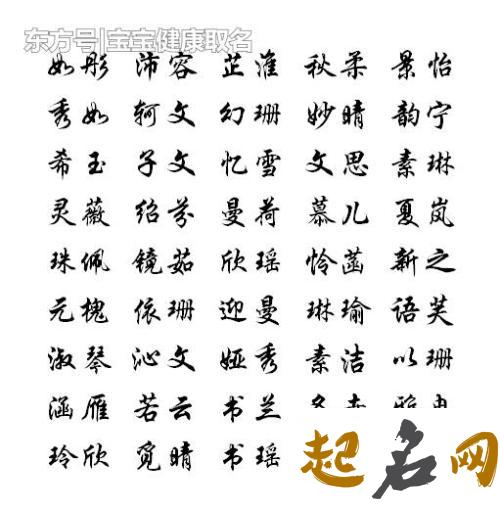 东方号|宝宝健康取名
如彤 沛容 芷淮 秋柔 景怡
秀如 轲文 幻珊 妙晴 韵宁
希玉 子文 忆雪 文思 素琳
灵薇 绍芬 曼荷 慕儿 夏岚
珠佩 镜茹 欣瑶 怜菡 新之
元槐 依珊 迎曼 琳瑜 语芙
淑琴 沁文 娅秀 素洁 以珊
涵雁 若云 书兰
玲欣 觅晴 书瑶
起名网